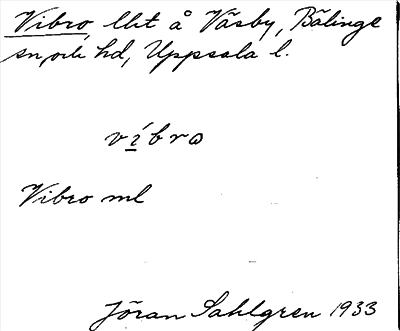 Vibro, lht å Väsby, Bälinge
sn och hd, Uppsala l.
víbrω
Vibro ml
Jöran Sahlgren 1933